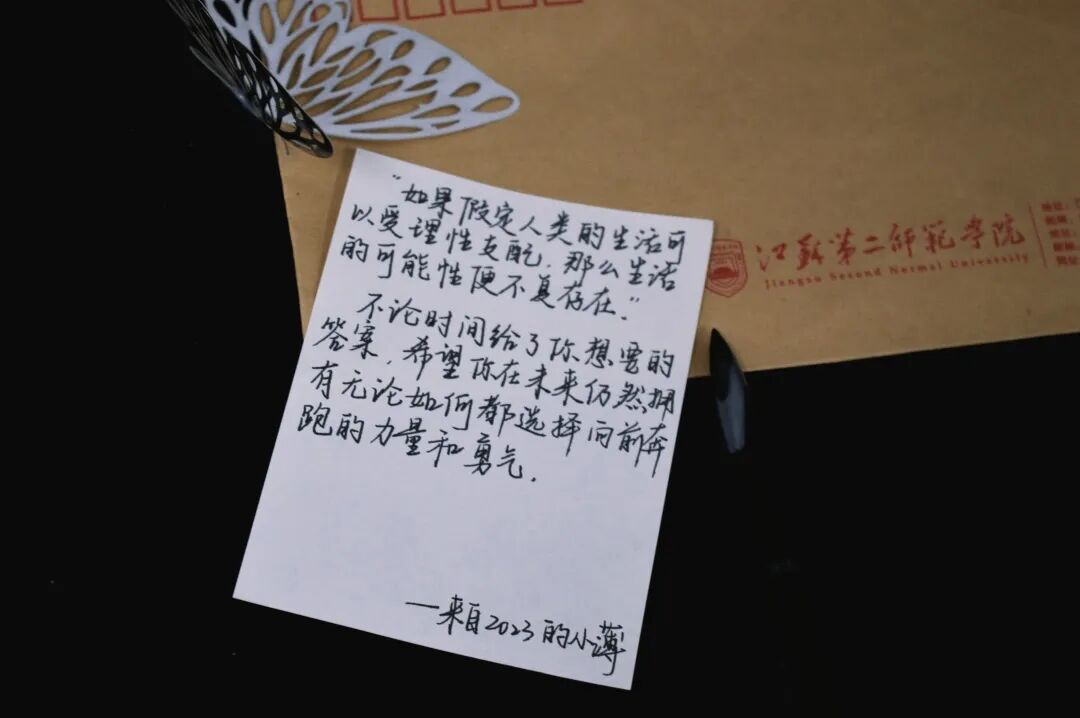 “如果假定人类的生活可
以受理性支配，那么生活
的可能性便不复存在。”
不论时间给了你想要的
答案，希望你在未来仍然拥
有无论如何都选择向前奔
跑的力量和勇气.
—来自2023的小薄
江苏第二师范学院
Jiangsu Second Normal University